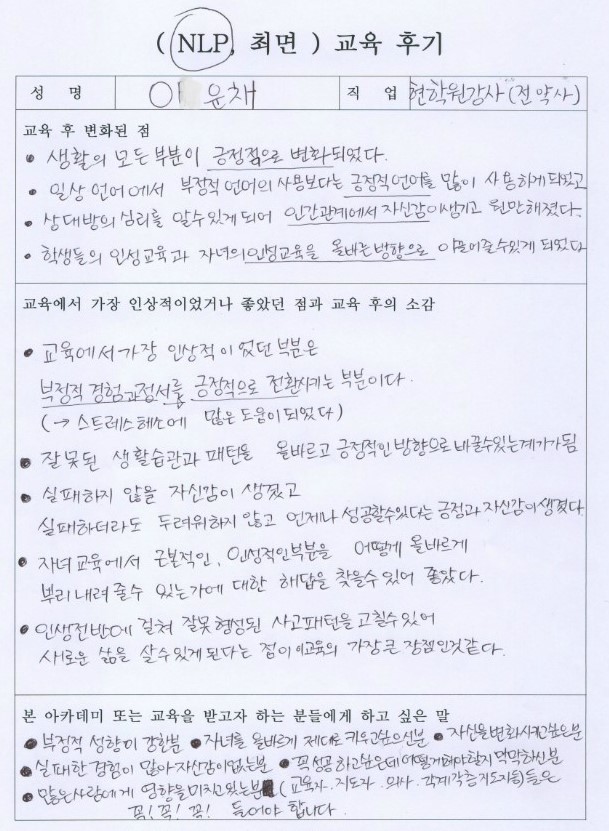 ( NLP, 최면 ) 교육 후기
성 명 이 윤채 직 업 현학원강사(전약사)
교육 후 변화된 점
• 생활의 모든부분이 긍정적으로 변화되었다.
• 일상언어에서 부정적언어의 사용보다는 긍정적언어를 많이 사용하게되었고
• 상대방의 심리를 알수있게되어 인간관계에서 자신감이생기고 원만해졌다.
• 학생들의 인성교육과 자녀의인성교육을 올바른방향으로 이끌어줄수있게 되었다
교육에서 가장 인상적이었거나 좋았던 점과 교육 후의 소감
• 교육에서가장 인상적이었던 부분은
부정적 경험과정서를 긍정적으로 전환시키는 부분이다.
(→ 스트레스해소에 많은 도움이되었다)
• 잘못된 생활습관과 패턴들 올바르고 긍정적인방향으로바꿀수있는계기가됨
• 실패하지 않을 자신감이 생겼고
실패하더라도 두려워하지 않고 언제나 성공할수있다는 긍정과자신감이생겼다
• 자녀교육에서 근본적인, 인성적인부분을 어떻게 올바르게
뿌리내려줄수 있는가에 대한 해답을 찾을수있어 좋았다.
• 인생전반에 걸쳐 잘못형성된 사고패턴을고칠수있어
새로운 삶을 살수있게된다는 점이 이교육의 가장큰 장점인것같다.
본 아카데미 또는 교육을 받고자 하는 분들에게 하고 싶은 말
• 부정적 성향이 강한분 • 자녀를 올바르게 제대로 키우고싶으신분 • 자신을변화시키고싶은분
• 실패한 경험이 많아자신감이없는분 • 꼭성공하고싶은데어떻게해야할지막막하신분
• 많은사람에게 영향을미치고있는분 (교육자.지도자.의사.각계각층지도자등)들은
꼭! 꼭! 꼭! 들어야 합니다.